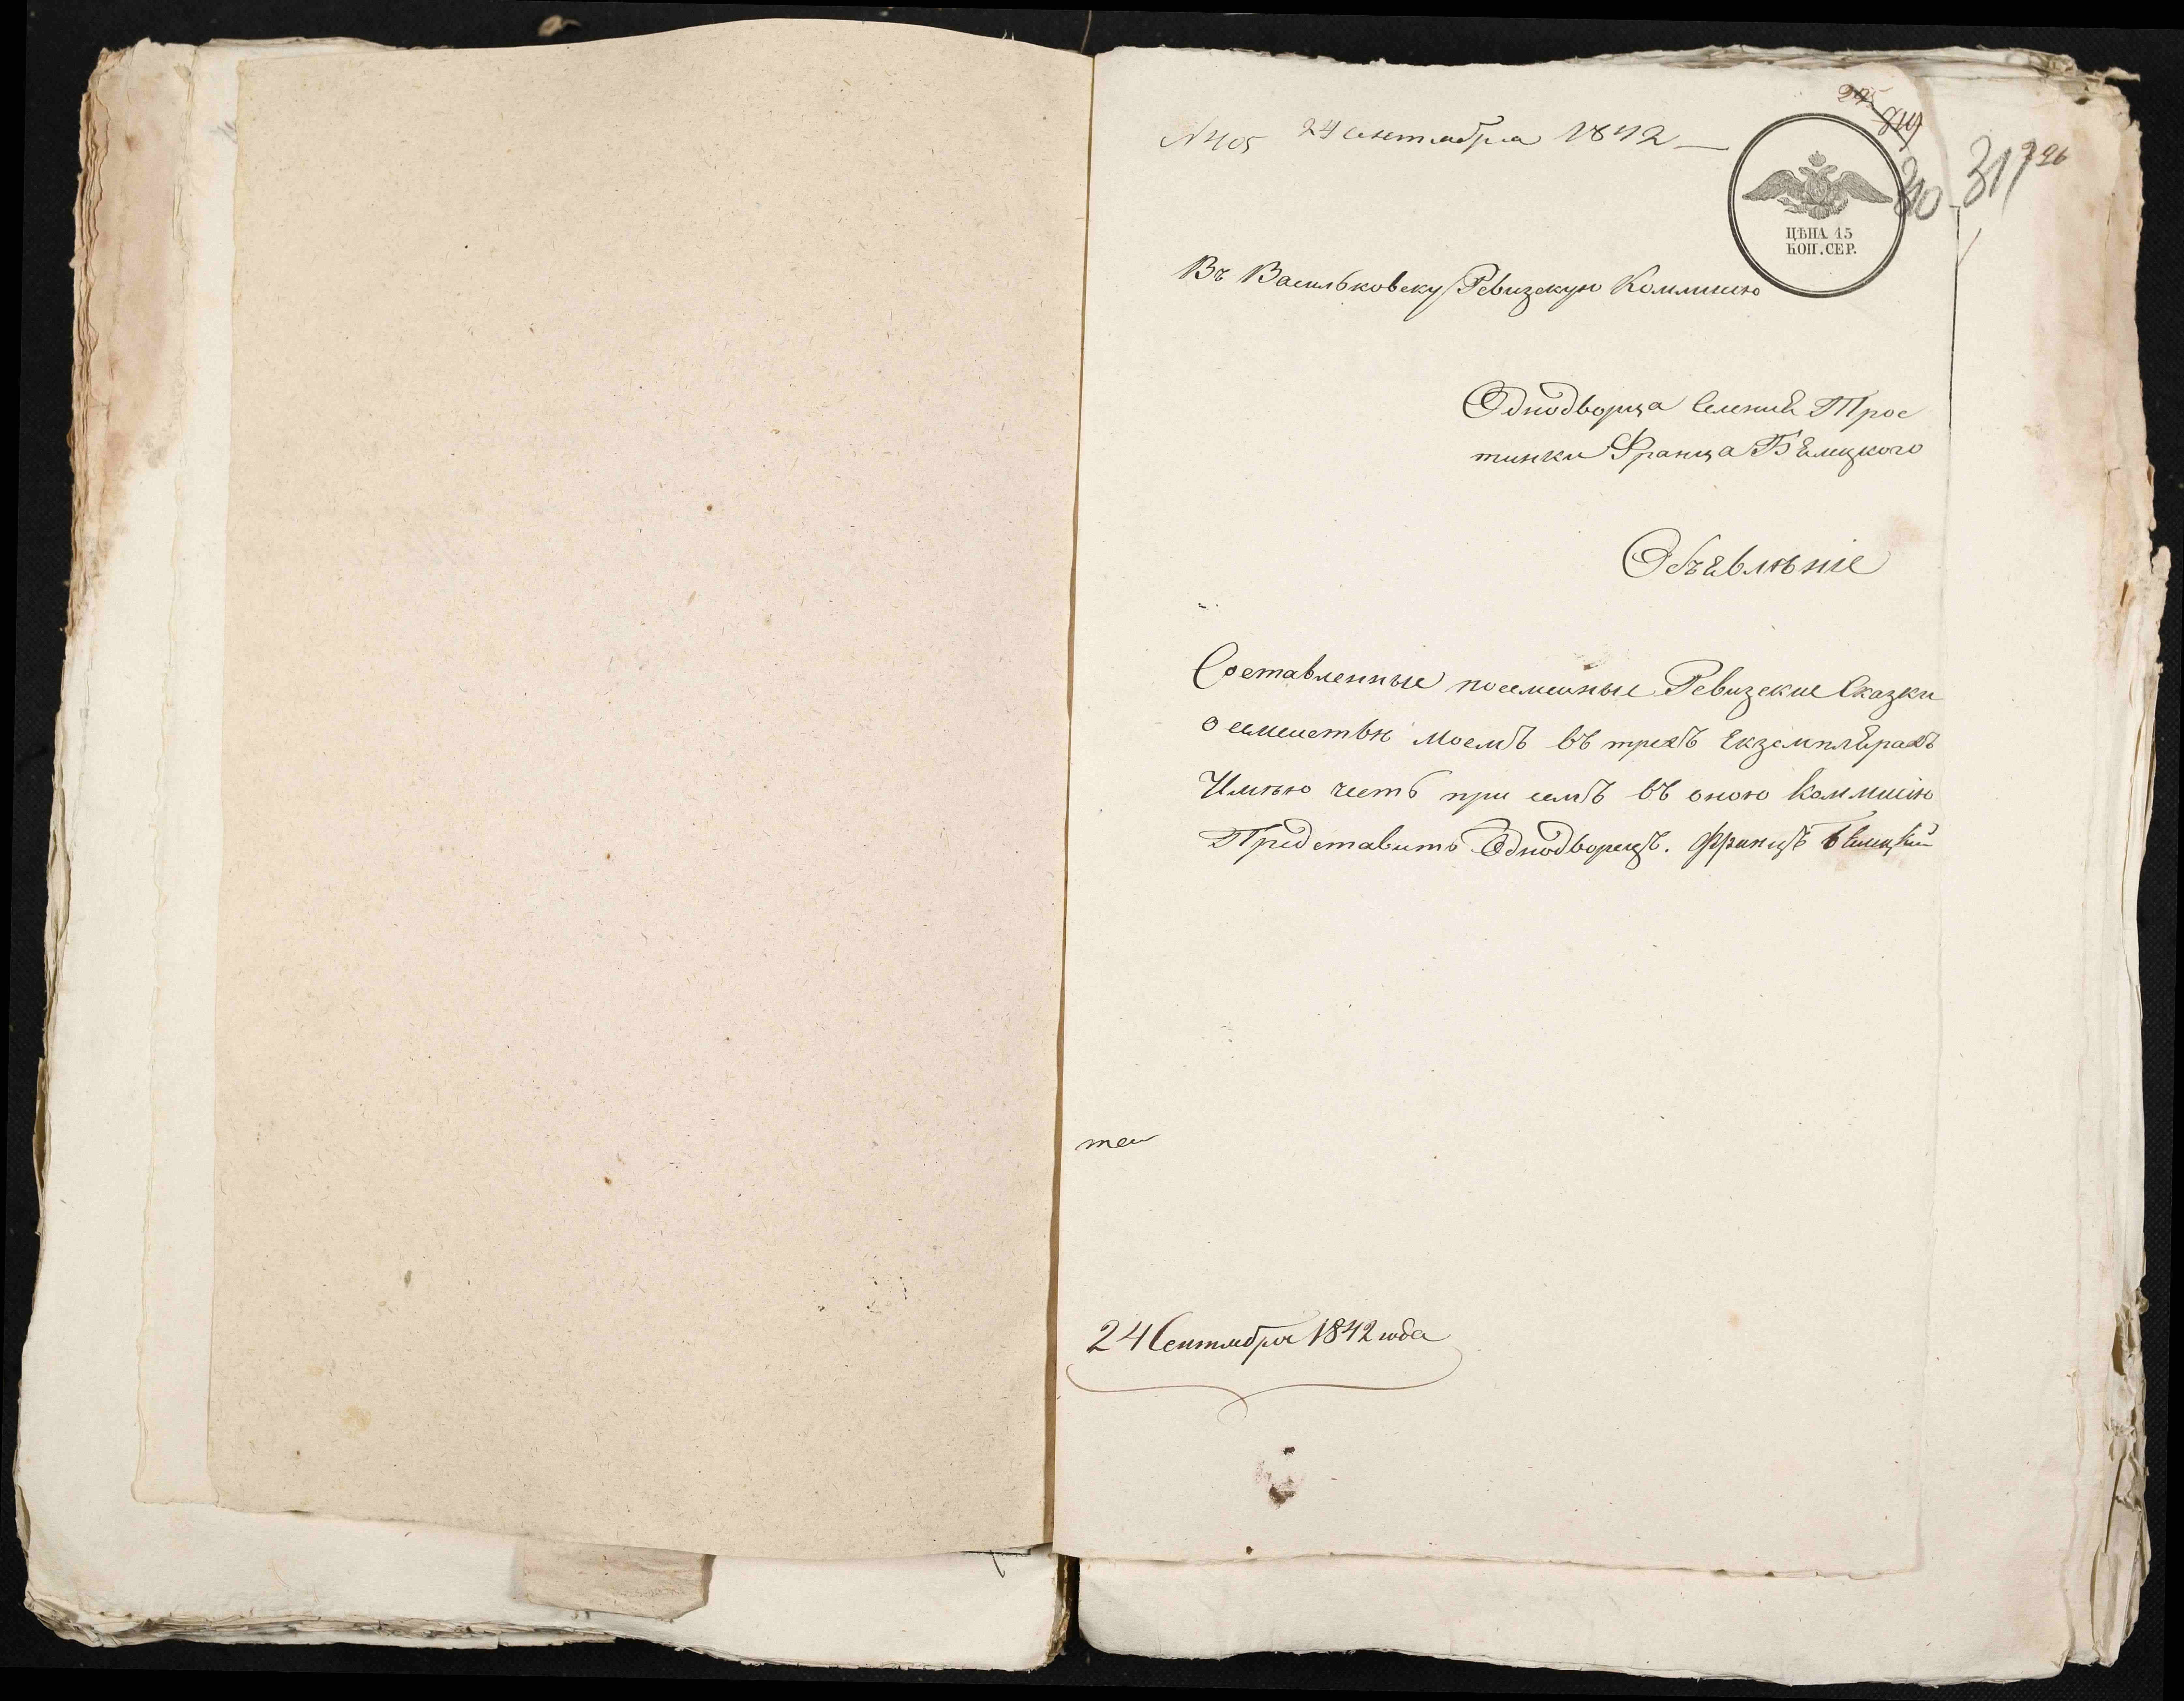 № 405 24 сентября 1842 —
ЦѢНА 15
КОП. СЕР.
310 317 326
Въ Васильковску Ревизскую Коммисию
Однодворца Селения Трос
тинки Франца Бѣлецкого
Объявлѣніе
Составленные посемейные Ревизские Сказки
о семействѣ моемъ въ трехъ Екземплярахъ
Имѣю честь при семъ въ оною Коммисію
Представить Однодворецъ. Францъ Бѣлецкій
24 Сентября 1842 года